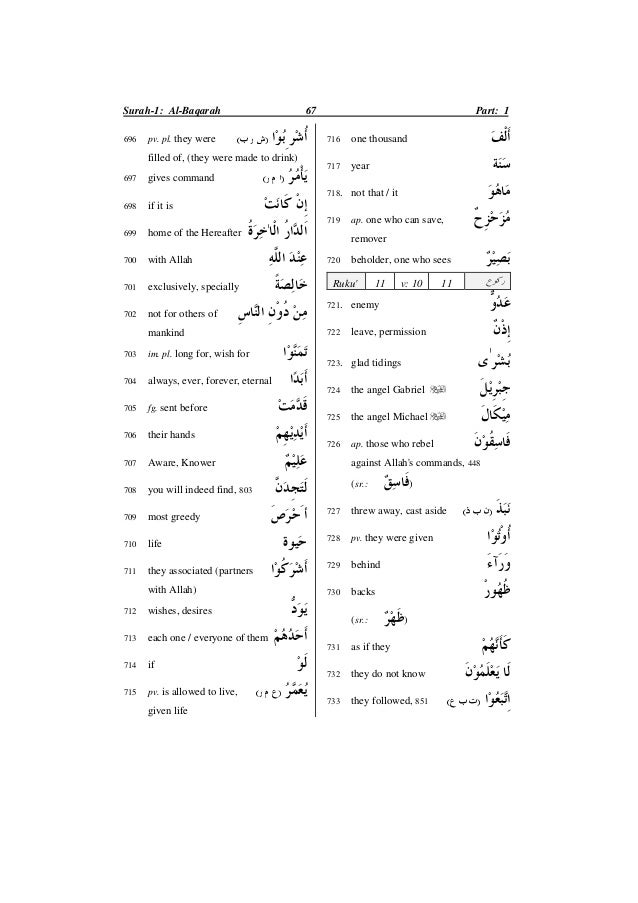 Surah-1: Al-Baqarah 67 Part: 1
696 pv. pl. they were (ش ر ب) أُشْرِبُوْا
filled of, (they were made to drink)
697 gives command (ا م ر) يَأْمُرُ
698 if it is إِنْ كَانَتْ
699 home of the Hereafter اَلدَّارُ الْاٰخِرَةُ
700 with Allah عِنْدَ اللَّهِ
701 exclusively, specially خَالِصَةً
702 not for others of مِنْ دُوْنِ النَّاسِ
mankind
703 im. pl. long for, wish for تَمَنَّوْا
704 always, ever, forever, eternal أَبَدًا
705 fg. sent before قَدَّمَتْ
706 their hands أَيْدِيْهِمْ
707 Aware, Knower عَلِيْمٌ
708 you will indeed find, 803 لَتَجِدَنَّ
709 most greedy أَحْرَصَ
710 life حَيٰوة
711 they associated (partners أَشْرَكُوْا
with Allah)
712 wishes, desires يَوَدُّ
713 each one / everyone of them أَحَدُهُمْ
714 if لَوْ
715 pv. is allowed to live, (ع م ر) يُعَمَّرُ
given life
716 one thousand أَلْفَ
717 year سَنَة
718. not that / it مَاهُوَ
719 ap. one who can save, مُزَحْزِحٌ
remover
720 beholder, one who sees بَصِيْرٌ
Ruku' 11 v: 10 11 رکوع
721. enemy عَدُوٌّ
722 leave, permission إِذْنٌ
723. glad tidings بُشْرٰى
724 the angel Gabriel جِبْرِيْلَ
725 the angel Michael مِيْكَالَ
726 ap. those who rebel فَاسِقُوْنَ
against Allah's commands, 448
(sr.: فَاسِقٌ)
727 threw away, cast aside (ن ب ذ) نَبَذَ
728 pv. they were given أُوْتُوْا
729 behind وَرَآءَ
730 backs ظُهُوْر
(sr.: ظَهْرٌ)
731 as if they كَأَنَّهُمْ
732 they do not know لَا يَعْلَمُوْنَ
733 they followed, 851 (ت ب ع) اِتَّبَعُوْا